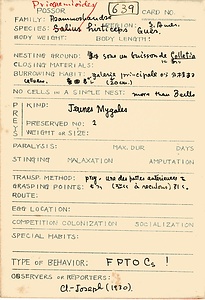 Prionemioides
POSSOR 639 CARD NO.
FAMILY: Psammocharidae
SPECIES: Salius hirticeps Guér. REGION: S. Amer.
BODY WEIGHT: BODY LENGTH:
NESTING GROUND: sous un buisson de Colletia
CLOSING MATERIALS:
BURROWING HABIT: galerie principale
NO. CELLS IN A SINGLE NEST: more than 2 cells
PREYS
KIND: Jeunes Mygales
PRESERVED NO.: 1
WEIGHT or SIZE:
PARALYSIS: MAX. DUR. DAYS
STINGING MALAXATION AMPUTATION
TRANSP. METHOD: une des pattes antérieures
GRASPING POINTS: (à reculons)
ROUTE:
EGG LOCATION:
COMPETITION COLONIZATION SOCIALIZATION
SPECIAL HABITS:
TYPE OF BEHAVIOR: FPTOCs !
OBSERVERS or REPORTERS:
Cl-Joseph (1930).